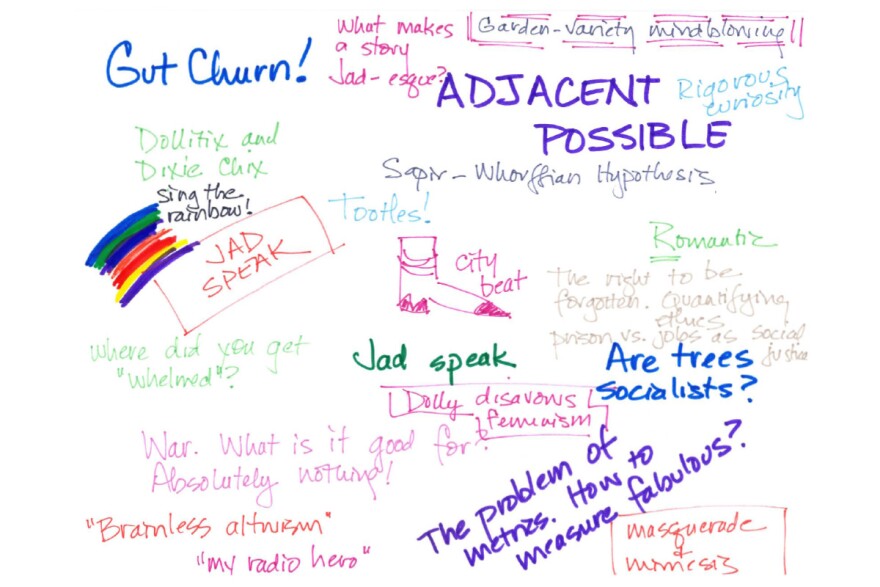 Gut Churn!
What makes
a story
Jad-esque?
Garden-variety mindblowing
ADJACENT
POSSIBLE
Rigorous
curiosity
Dollitix and
Dixie Chix
sing the
rainbow!
JAD
SPEAK
Sapir-Whorffian Hypothesis
Tootles!
city
beat
Romantic
The right to be
forgotten. Quantifying
ethics
prison vs. jobs as social
justice
where did you get
"whelmed"?
Jad speak
Are trees
socialists?
Dolly disavows
feminism
War. What is it good for?
Absolutely nothing!
The problem of
metrics. How to
measure fabulous?
"Brainless altruism"
"my radio hero"
masquerade
&
mimesis